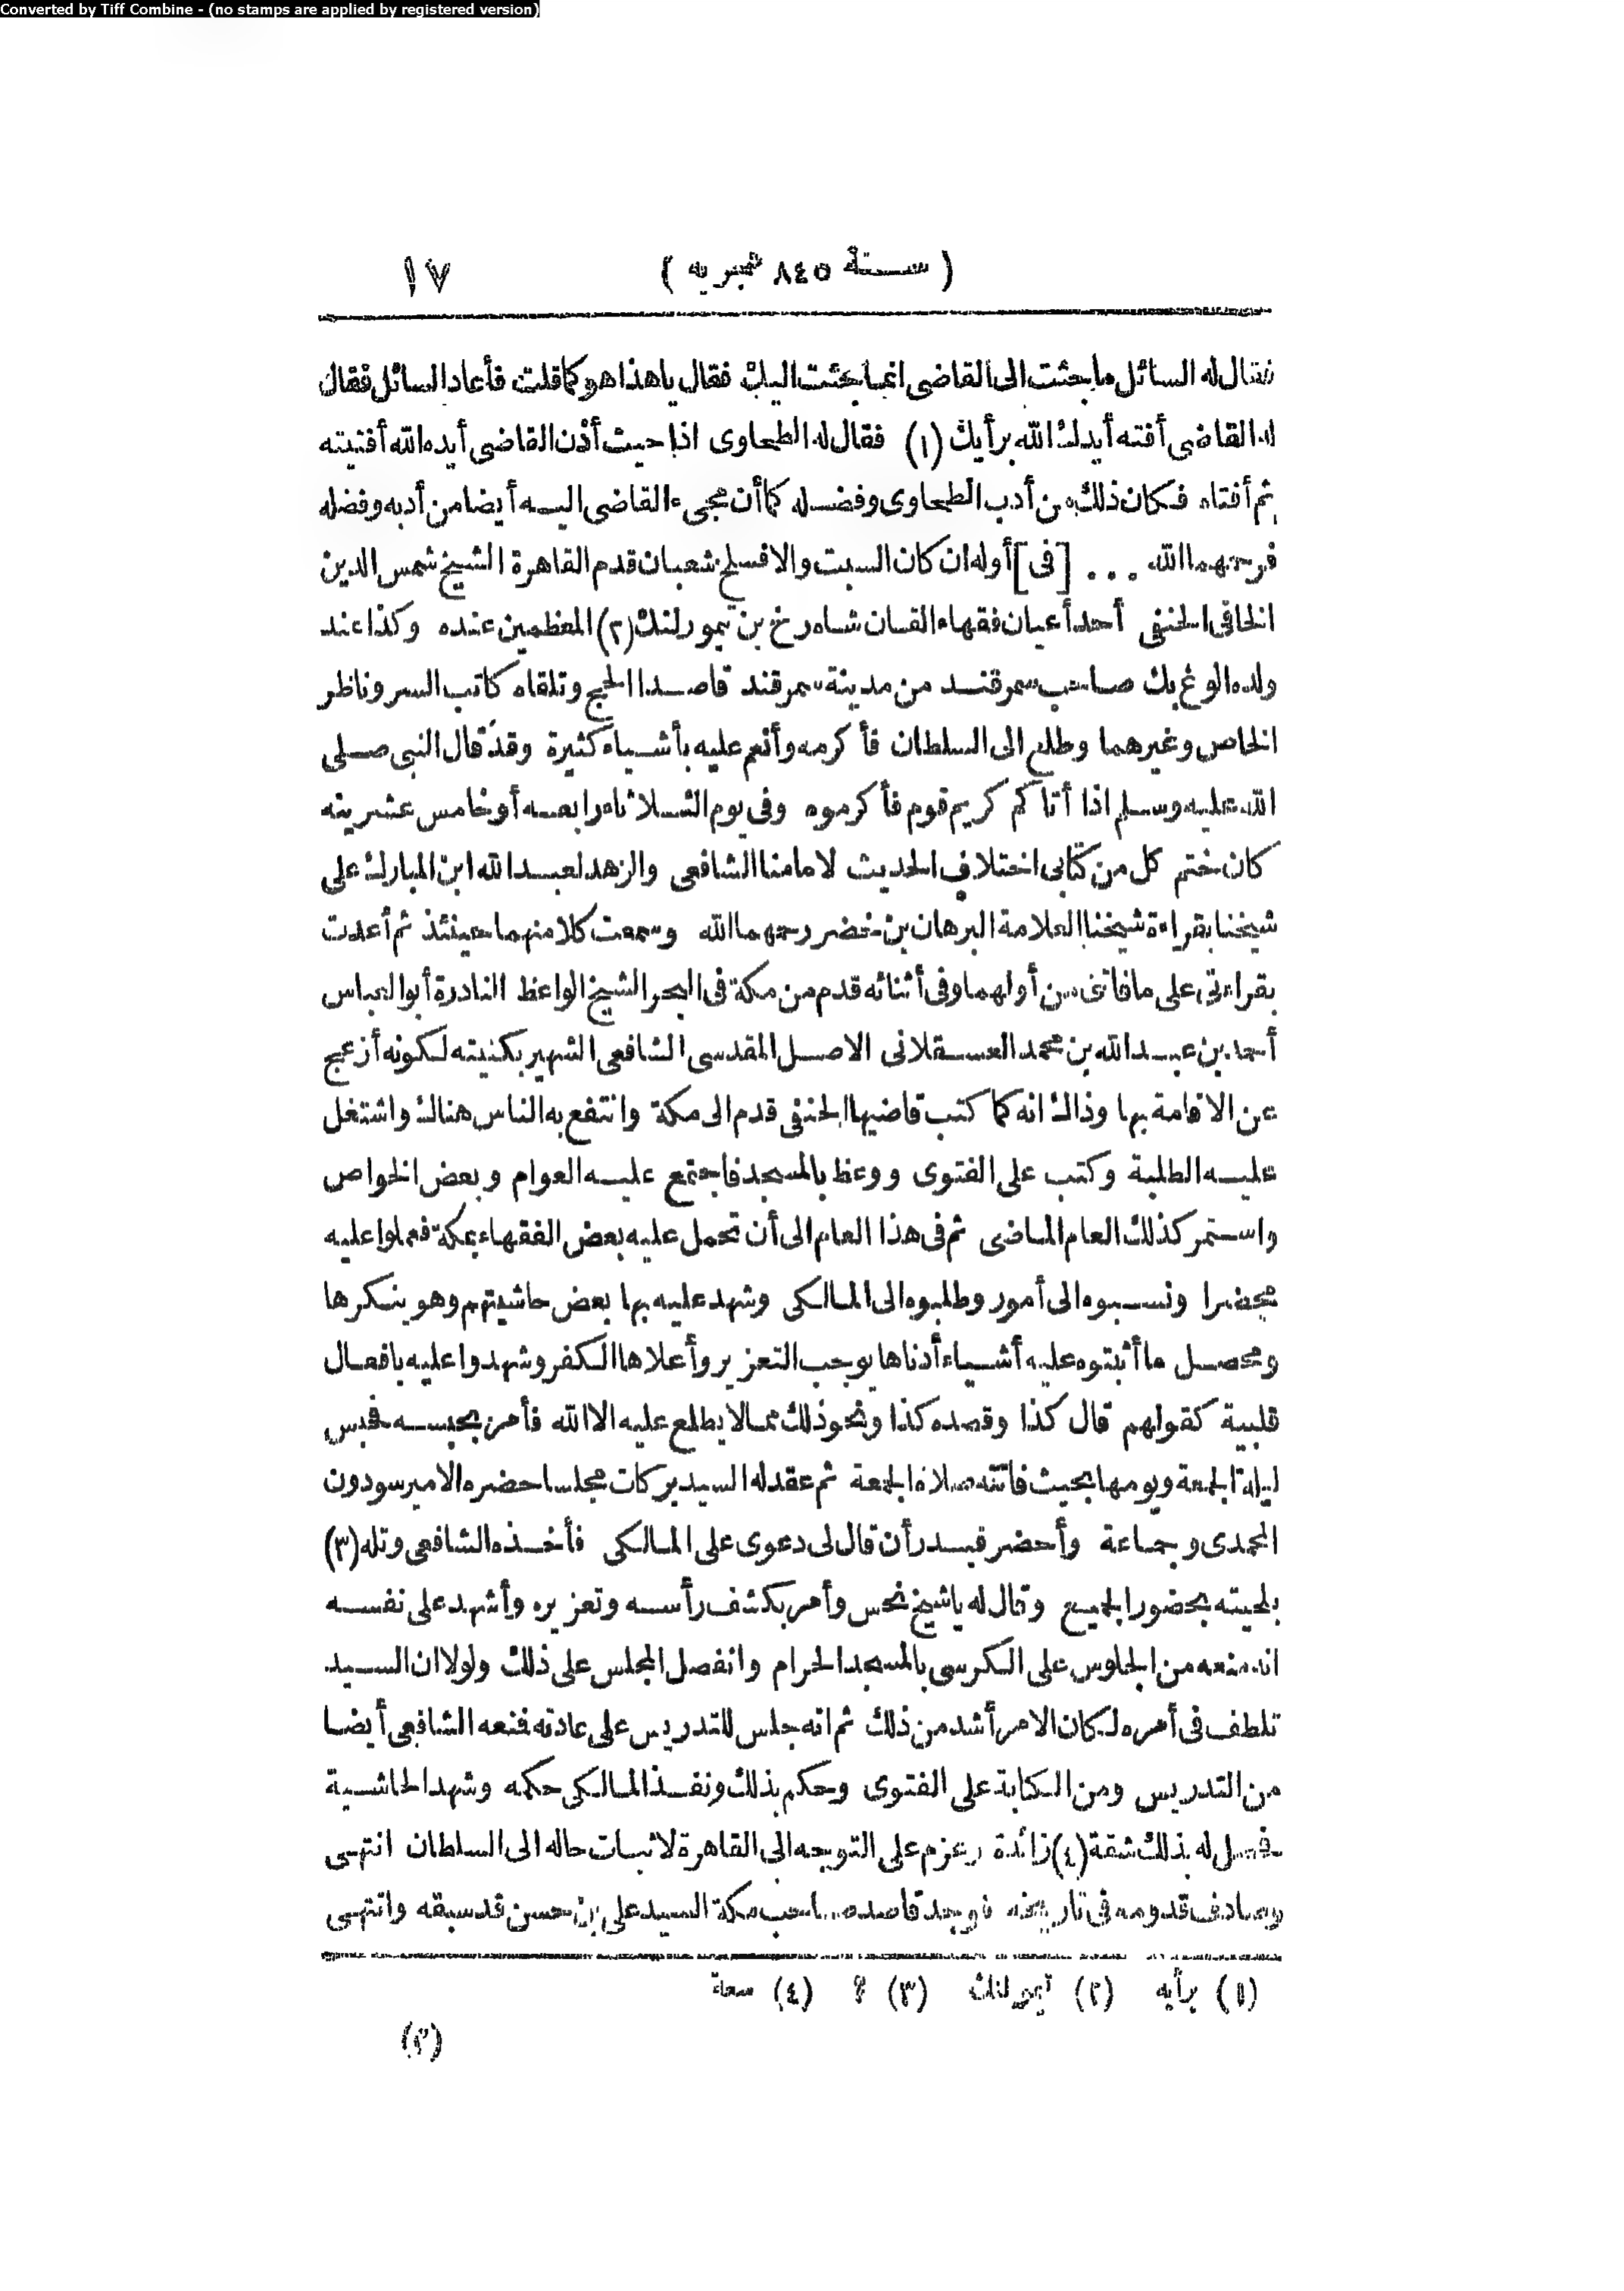 Converted by Tiff Combine - (no stamps are applied by registered version)
( سنة ٨٤٥ هجريه ) ١٧
فقال له السائل ما جئت الى القاضى انما جئت اليك فقال يا هذا هو كما قلت فأعاد السائل فقال
له القاضى أفته أيدك الله برأيك (١) فقال له الطحاوى اذا حيث أذن القاضى أيده الله أفتيته
ثم أفتاه فكان ذلك من أدب الطحاوى وفضله كما أن مجىء القاضى اليه أيضا من أدبه وفضله
فرحمهما الله . . . [فى] أوله ان كان السبت والا فسلخ شعبان قدم القاهرة الشيخ شمس الدين
الخافى الحنفى أحد أعيان فقهاء القان شاه رخ بن تيمورلنك (٢) المعظمين عنده وكذا عند
ولده الوغ بك صاحب سمرقند من مدينة سمرقند قاصدا الحج وتلقاه كاتب السر وناظر
الخاص وغيرهما وطلع الى السلطان فأكرمه وأنعم عليه بأشياء كثيرة وقد قال النبى صلى
الله عليه وسلم اذا أتاكم كريم قوم فأكرموه وفى يوم الثلاثاء رابعه أو خامس عشرينه
كان ختم كل من كتابى اختلاف الحديث لامامنا الشافعى والزهد لعبد الله ابن المبارك على
شيخنا بقراءة شيخنا العلامة البرهان بن خضر رحمهما الله وسمعت كلا منهما حينئذ ثم أعدت
بقراءتى على ما فاتنى من أولهما وفى أثنائه قدم من مكة فى البحر الشيخ الواعظ النادرة أبو العباس
أحمد بن عبد الله بن محمد العسقلانى الاصل المقدسى الشافعى الشهير بكنيته لكونه أزعج
عن الاقامة بها وذاك انه كما كتب قاضيها الحنفى قدم الى مكة وانتفع به الناس هناك واشتغل
عليه الطلبة وكتب على الفتوى ووعظ بالمسجد فاجتمع عليه العوام وبعض الخواص
واستمر كذلك العام الماضى ثم فى هذا العام الى أن تحمل عليه بعض الفقهاء بمكة فعملوا عليه
محضرا ونسبوه الى أمور وطلبوه الى المالكى وشهد عليه بها بعض حاشيتهم وهو ينكرها
ومحصل ما أثبتوه عليه أشياء أدناها يوجب التعزير وأعلاها الكفر وشهدوا عليه بافعال
قلبية كقولهم قال كذا وقصده كذا ونحو ذلك مما لا يطلع عليه الا الله فأمر بحبسه فحبس
ليلة الجمعة ويومها بحيث فاتته صلاة الجمعة ثم عقد له السيد بركات مجلسا حضره الامير سودون
المحمدى وجماعة وأحضر فبدر أن قال لى دعوى على المالكى فأخذه الشافعى وتله (٣)
بلحيته بحضور الجميع وقال له يا شيخ نحس وأمر بكشف رأسه وتعزيره وأشهد على نفسه
انه منعه من الجلوس على الكرسى بالمسجد الحرام وانفصل المجلس على ذلك ولولا ان السيد
تلطف فى أمره لكان الامر أشد من ذلك ثم انه جلس للتدريس على عادته فمنعه الشافعى أيضا
من التدريس ومن الكتابة على الفتوى وحكم بذلك ونفذ المالكى حكمه وشهد الحاشية
فحصل له بذلك شقة (٤) زائدة وعزم على التوجه الى القاهرة لاثبات حاله الى السلطان انتهى
وصادف قدومه فى تاريخه فوجد قاصد صاحب مكة السيد على بن حسن قد سبقه وانتهى
(١) برأيه (٢) تيمورلنك (٣) ؟ (٤) سعة
(٣)